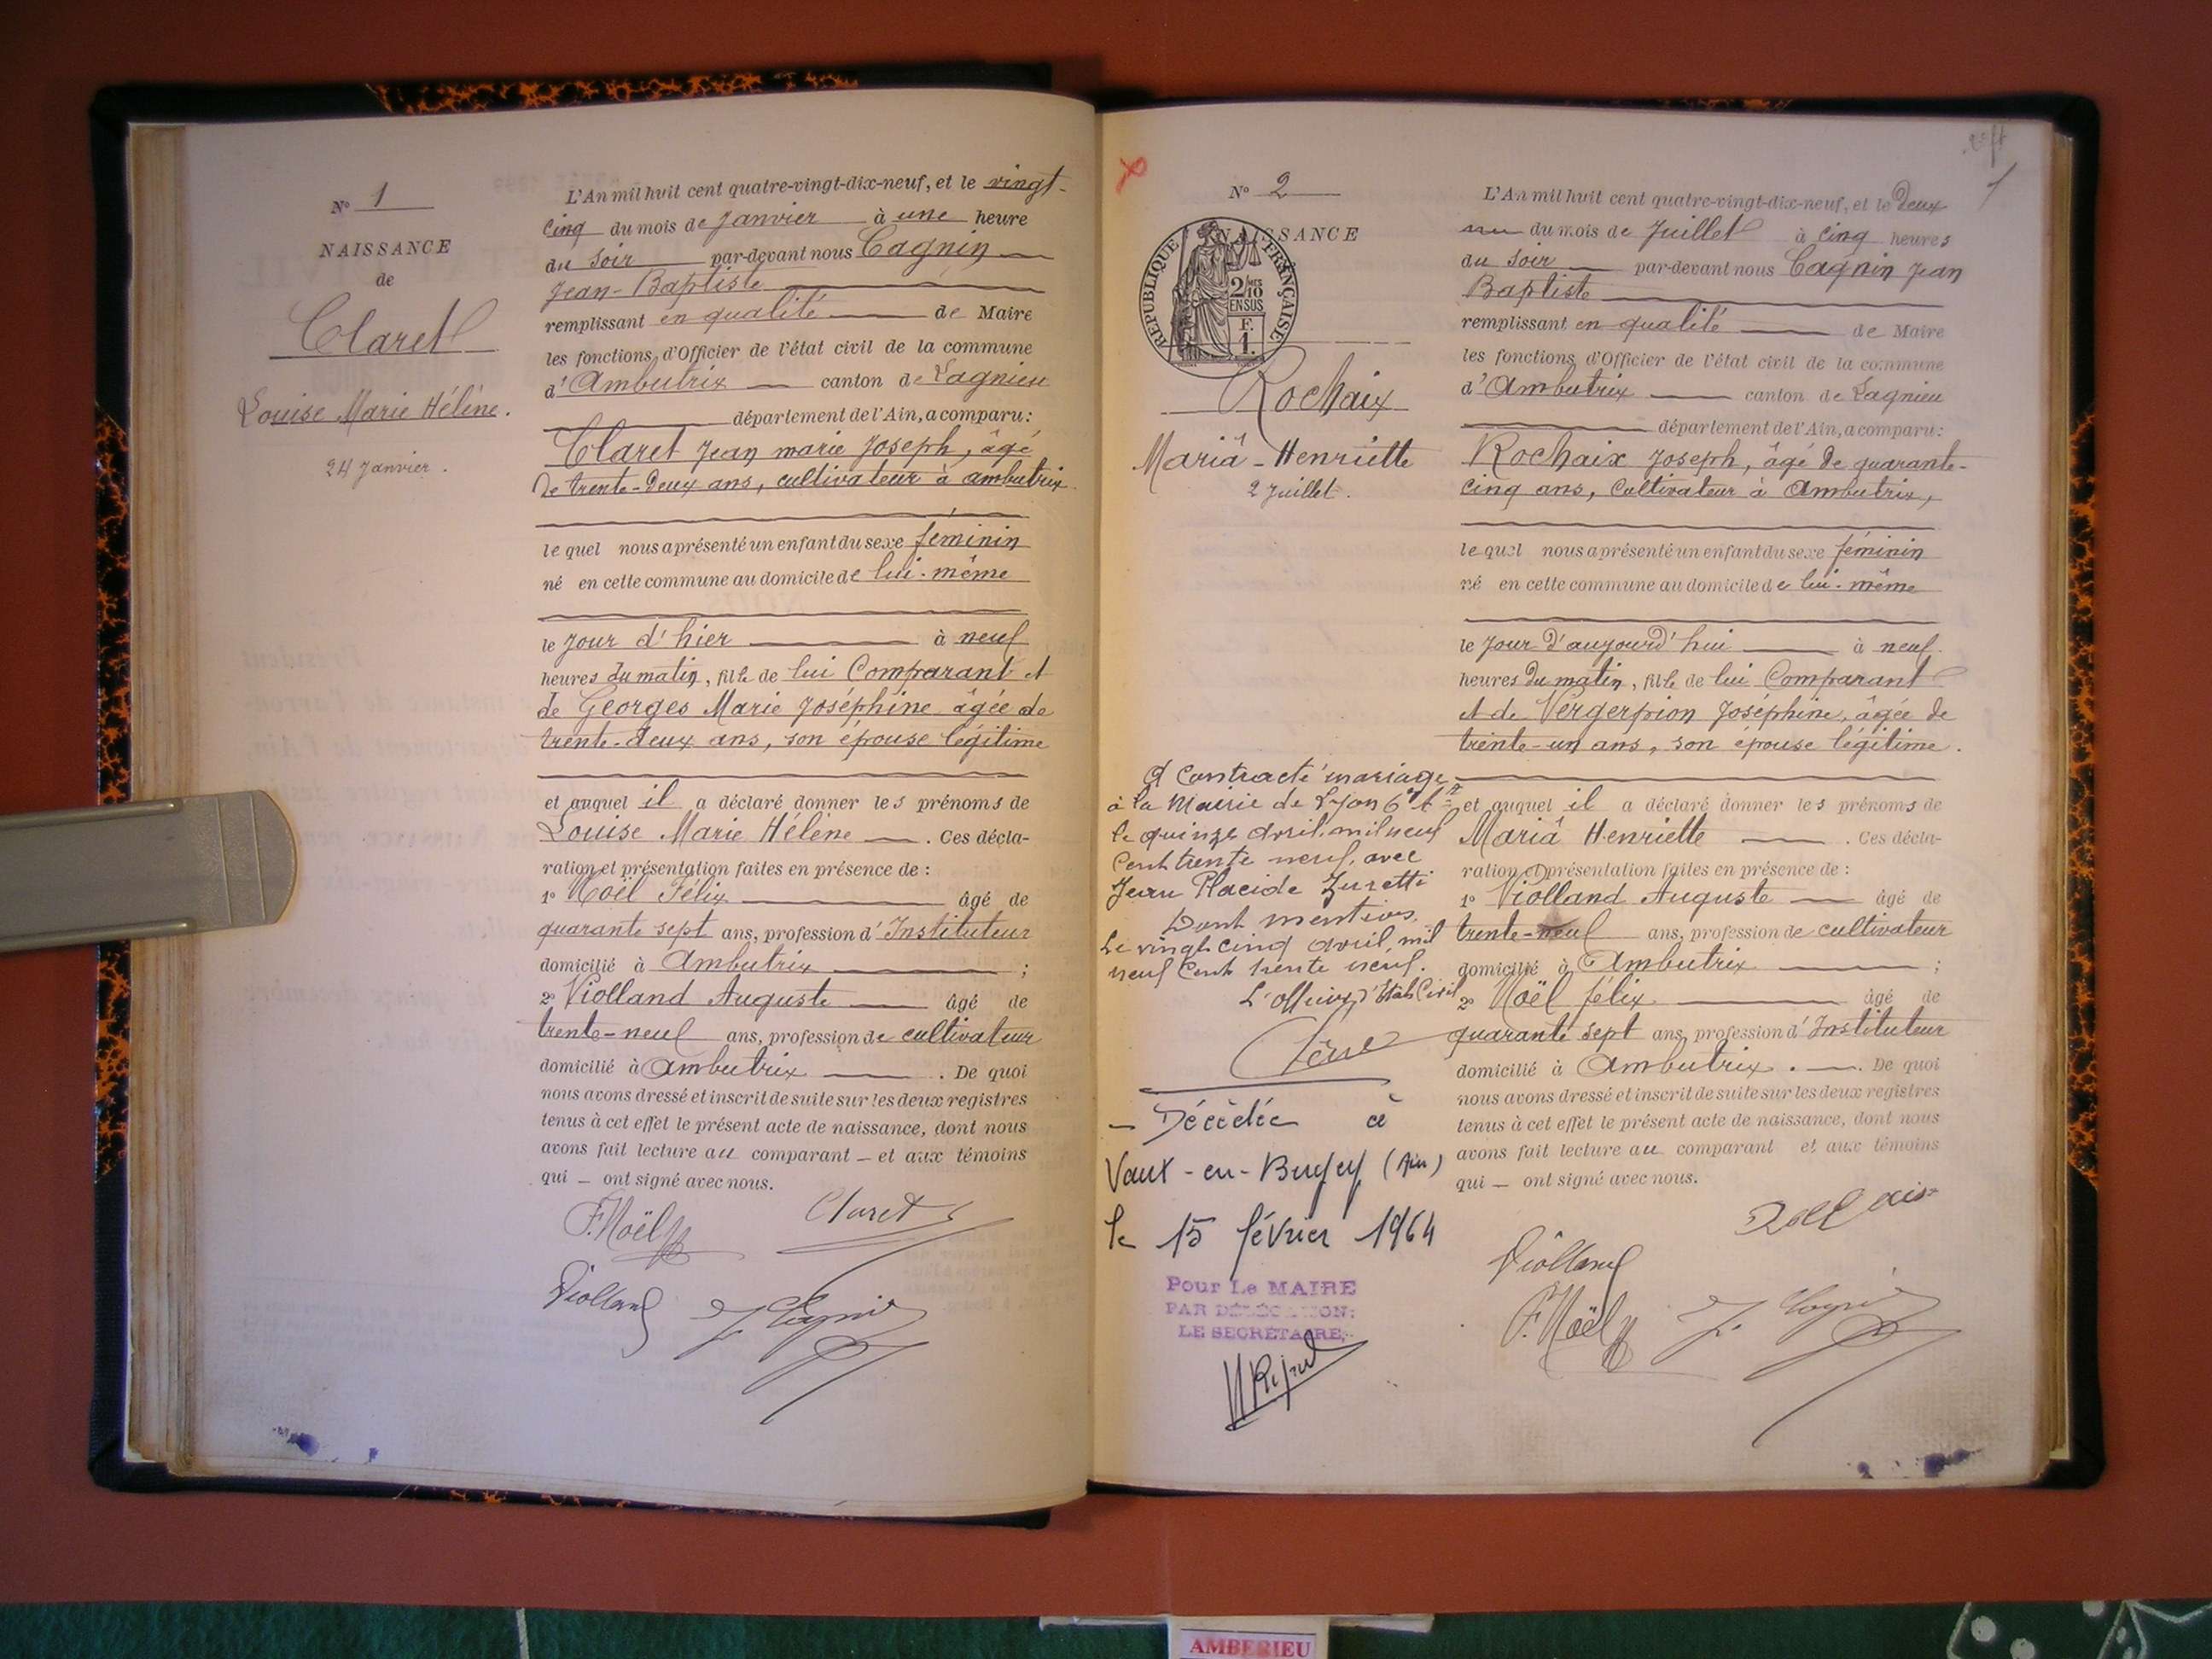 N° 1
NAISSANCE
de
Claret
Louise Marie Hélène.
24 Janvier.
L'An mil huit cent quatre-vingt-dix-neuf, et le vingt-
cinq du mois de Janvier à une heure
du soir par-devant nous Cagnin
Jean-Baptiste
remplissant en qualité de Maire
les fonctions d'Officier de l'état civil de la commune
d'Ambutrix canton de Lagnieu
département de l'Ain, a comparu:
Claret Jean marie Joseph, âgé
de trente-deux ans, cultivateur à ambutrix
le quel nous a présenté un enfant du sexe féminin
né en cette commune au domicile de lui-même
le jour d'hier à neuf
heures du matin, fille de lui Comparant et
de Georges Marie Joséphine âgée de
trente-deux ans, son épouse légitime
et auquel il a déclaré donner les prénoms de
Louise Marie Hélène . Ces décla-
ration et présentation faites en présence de :
1° Noël Félix âgé de
quarante sept ans, profession d'Instituteur
domicilié à Ambutrix ;
2° Violland Auguste âgé de
trente-neuf ans, profession de cultivateur
domicilié à Ambutrix . De quoi
nous avons dressé et inscrit de suite sur les deux registres
tenus à cet effet le présent acte de naissance, dont nous
avons fait lecture au comparant – et aux témoins
qui – ont signé avec nous.
F. Noël Claret
Violland J. Cagnin
N° 2
NAISSANCE
REPUBLIQUE FRANÇAISE
2/10 MES
EN SUS
F.
1.
Rochaix
Mariâ-Henriette
2 Juillet.
A contracté mariage
à la Mairie de Lyon 6e Art
le quinze avril mil neuf
cent trente neuf, avec
Jean Placide Zuretti
Dont mention
Le vingt cinq avril mil
neuf cent trente neuf.
L'officier d'Etat Civil
– Décédée à
Vaux-en-Bugey (Ain)
le 15 février 1964
Pour Le MAIRE
PAR DÉLÉGATION:
LE SECRÉTAIRE,
1
L'An mil huit cent quatre-vingt-dix-neuf, et le deux
du mois de Juillet à cinq heures
du soir par-devant nous Cagnin Jean
Baptiste
remplissant en qualité de Maire
les fonctions d'Officier de l'état civil de la commune
d'Ambutrix canton de Lagnieu
département de l'Ain, a comparu:
Rochaix Joseph, âgé de quarante-
cinq ans, Cultivateur à Ambutrix,
le quel nous a présenté un enfant du sexe féminin
né en cette commune au domicile de lui-même
le jour d'aujourd'hui à neuf
heures du matin, fille de lui Comparant
et de Vergerpion Joséphine, âgée de
trente-un ans, son épouse légitime.
et auquel il a déclaré donner les prénoms de
Mariâ Henriette . Ces décla-
ration et présentation faites en présence de :
1° Violland Auguste âgé de
trente-neuf ans, profession de cultivateur
domicilié à Ambutrix ;
2° Noël félix âgé de
quarante sept ans, profession d'Instituteur
domicilié à Ambutrix. De quoi
nous avons dressé et inscrit de suite sur les deux registres
tenus à cet effet le présent acte de naissance, dont nous
avons fait lecture au comparant et aux témoins
qui – ont signé avec nous.
Rochaix
Violland
F. Noël J. Cagnin
AMBERIEU